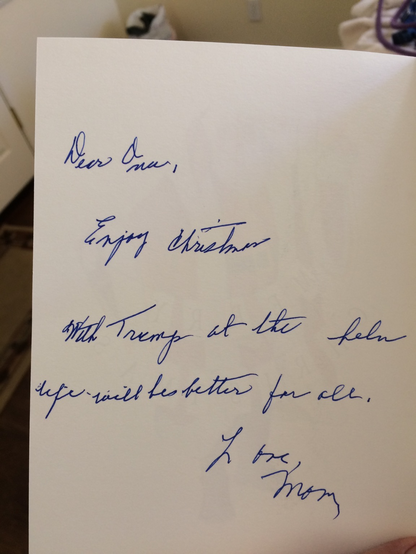 Dear Ona,
Enjoy Christmas
With Trump at the helm
life will be better for all.
Love,
Mom